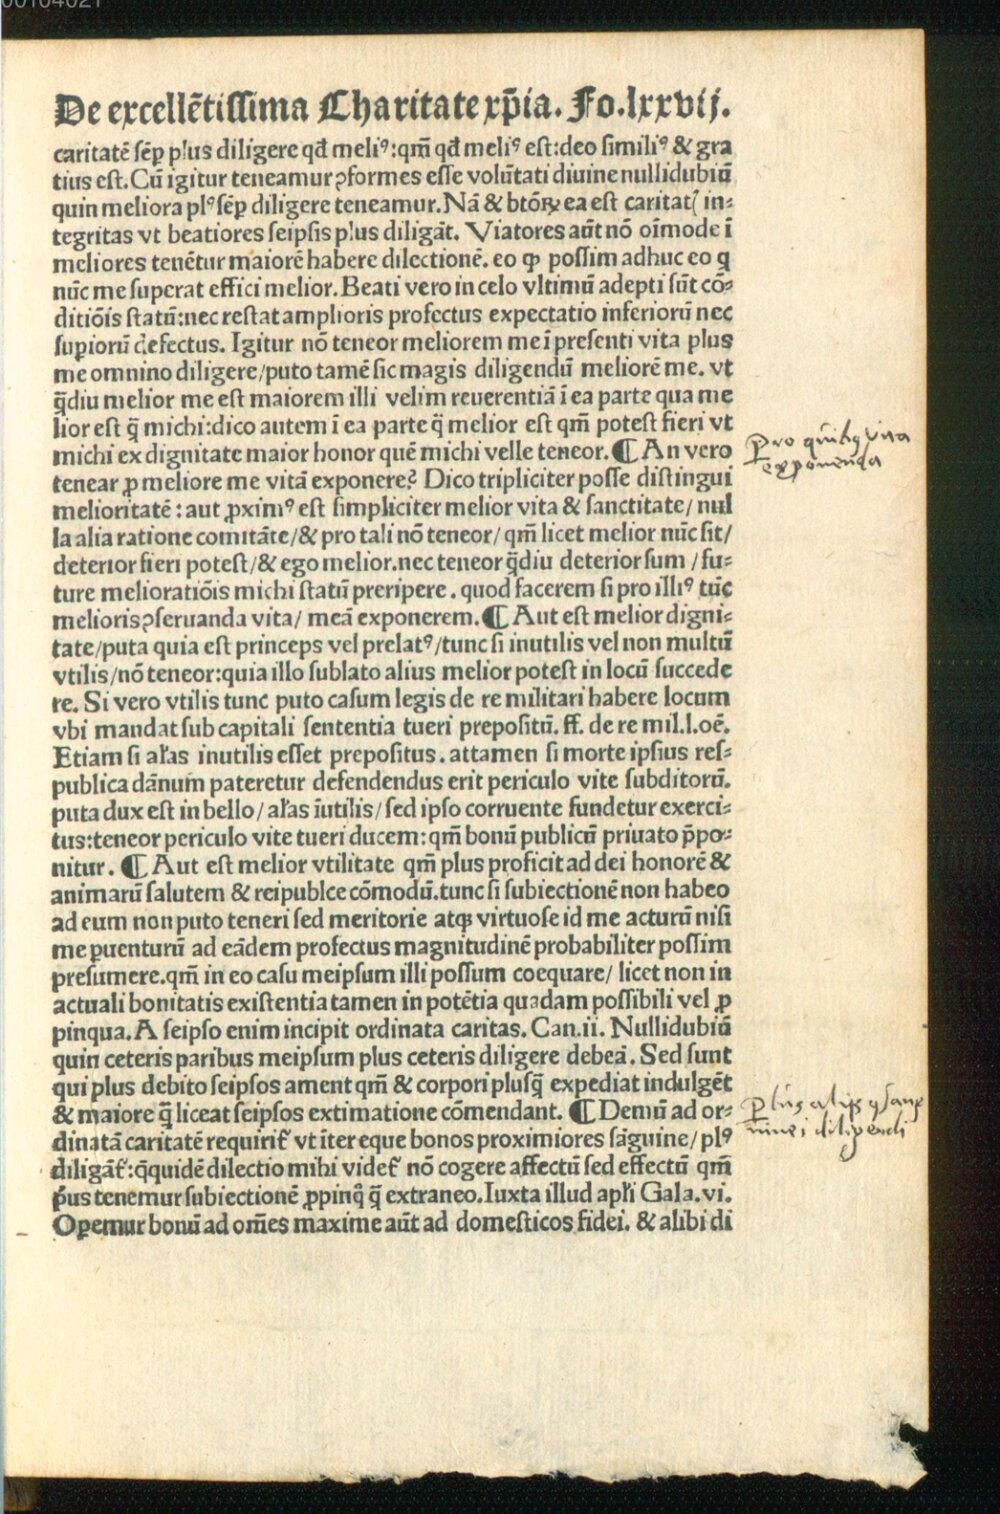 De excellētissima Charitate xp̄ia. Fo.lxxvij.
caritatē sēp plus diligere qđ meliꝰ:qm̄ qđ meliꝰ est:deo similiꝰ & gra
tius est.Cū igitur teneamur ꝯformes esse volūtati diuine nullidubiū
quin meliora plꝰ sēp diligere teneamur.Nā & btōꝝ ea est caritatꝭ in⸗
tegritas vt beatiores seipsis plus diligāt. Viatores aūt nō oīmode ī
meliores tenētur maiorē habere dilectionē. eo ꝙ possim adhuc eo q̄
nūc me superat effici melior.Beati vero in celo vltimū adepti sūt cō⸗
ditiōis statū:nec restat amplioris profectus expectatio inferiorū nec
suꝑiorū defectus. Igitur nō teneor meliorem me ī presenti vita plus
me omnino diligere/puto tamē sic magis diligendū meliorē me. vt
q̄diu melior me est maiorem illi velim reuerentiā ī ea parte qua me
lior est q̄ michi:dico autem ī ea parte q̄ melior est qm̄ potest fieri vt
michi ex dignitate maior honor quē michi velle teneor.¶ An vero
tenear ꝓ meliore me vitā exponere? Dico tripliciter posse distingui
melioritatē : aut ꝓximꝰ est simpliciter melior vita & sanctitate/ nul
la alia ratione comitāte/& pro tali nō teneor/ qm̄ licet melior nūc sit/
deterior fieri potest/& ego melior.nec teneor q̄diu deterior sum /fu⸗
ture melioratiōis michi statū preripere . quod facerem si pro illiꝰ tūc
melioris ꝯseruanda vita/ meā exponerem.¶ Aut est melior digni⸗
tate/puta quia est princeps vel prelatꝰ/tunc si inutilis vel non multū
vtilis/nō teneor:quia illo sublato alius melior potest in locū succede
re. Si vero vtilis tunc puto casum legis de re militari habere locum
vbi mandat sub capitali sententia tueri prepositū. ff. de re mil.l.oē.
Etiam si al̄as inutilis esset prepositus . attamen si morte ipsius res⸗
publica dānum pateretur defendendus erit periculo vite subditorū.
puta dux est in bello/ al̄as īutilis/ sed ipso corruente fundetur exerci⸗
tus:teneor periculo vite tueri ducem:qm̄ bonū publicū priuato p̄po⸗
nitur . ¶ Aut est melior vtilitate qm̄ plus proficit ad dei honorē &
animarū salutem & reipublce cōmodū.tunc si subiectionē non habeo
ad eum non puto teneri sed meritorie atqꝫ virtuose id me acturū nisi
me ꝑuenturū ad eādem profectus magnitudinē probabiliter possim
presumere.qm̄ in eo casu meipsum illi possum coequare/ licet non in
actuali bonitatis existentia tamen in potētia quadam possibili vel ꝓ
pinqua. A seipso enim incipit ordinata caritas. Can.ii. Nullidubiū
quin ceteris paribus meipsum plus ceteris diligere debeā. Sed sunt
qui plus debito seipsos ament qm̄ & corpori plusq̄ expediat indulgēt
& maiore q̄ liceat seipsos extimatione cōmendant. ¶ Demū ad or⸗
dinatā caritatē requirit̄ vt īter eque bonos proximiores sāguine/ plꝰ
diligāt̄:q̄quidē dilectio mihi videt̄ nō cogere affectū sed effectū qm̄
p̄us tenemur subiectionē ꝓpinq̄ q̄ extraneo.Iuxta illud apl̄i Gala.vi.
Oꝑemur bonū ad om̄es maxime aūt ad domesticos fidei. & alibi di
Pro quibꝫ vita
exponenda
Plus alijs ꝯsang
uinei diligendi